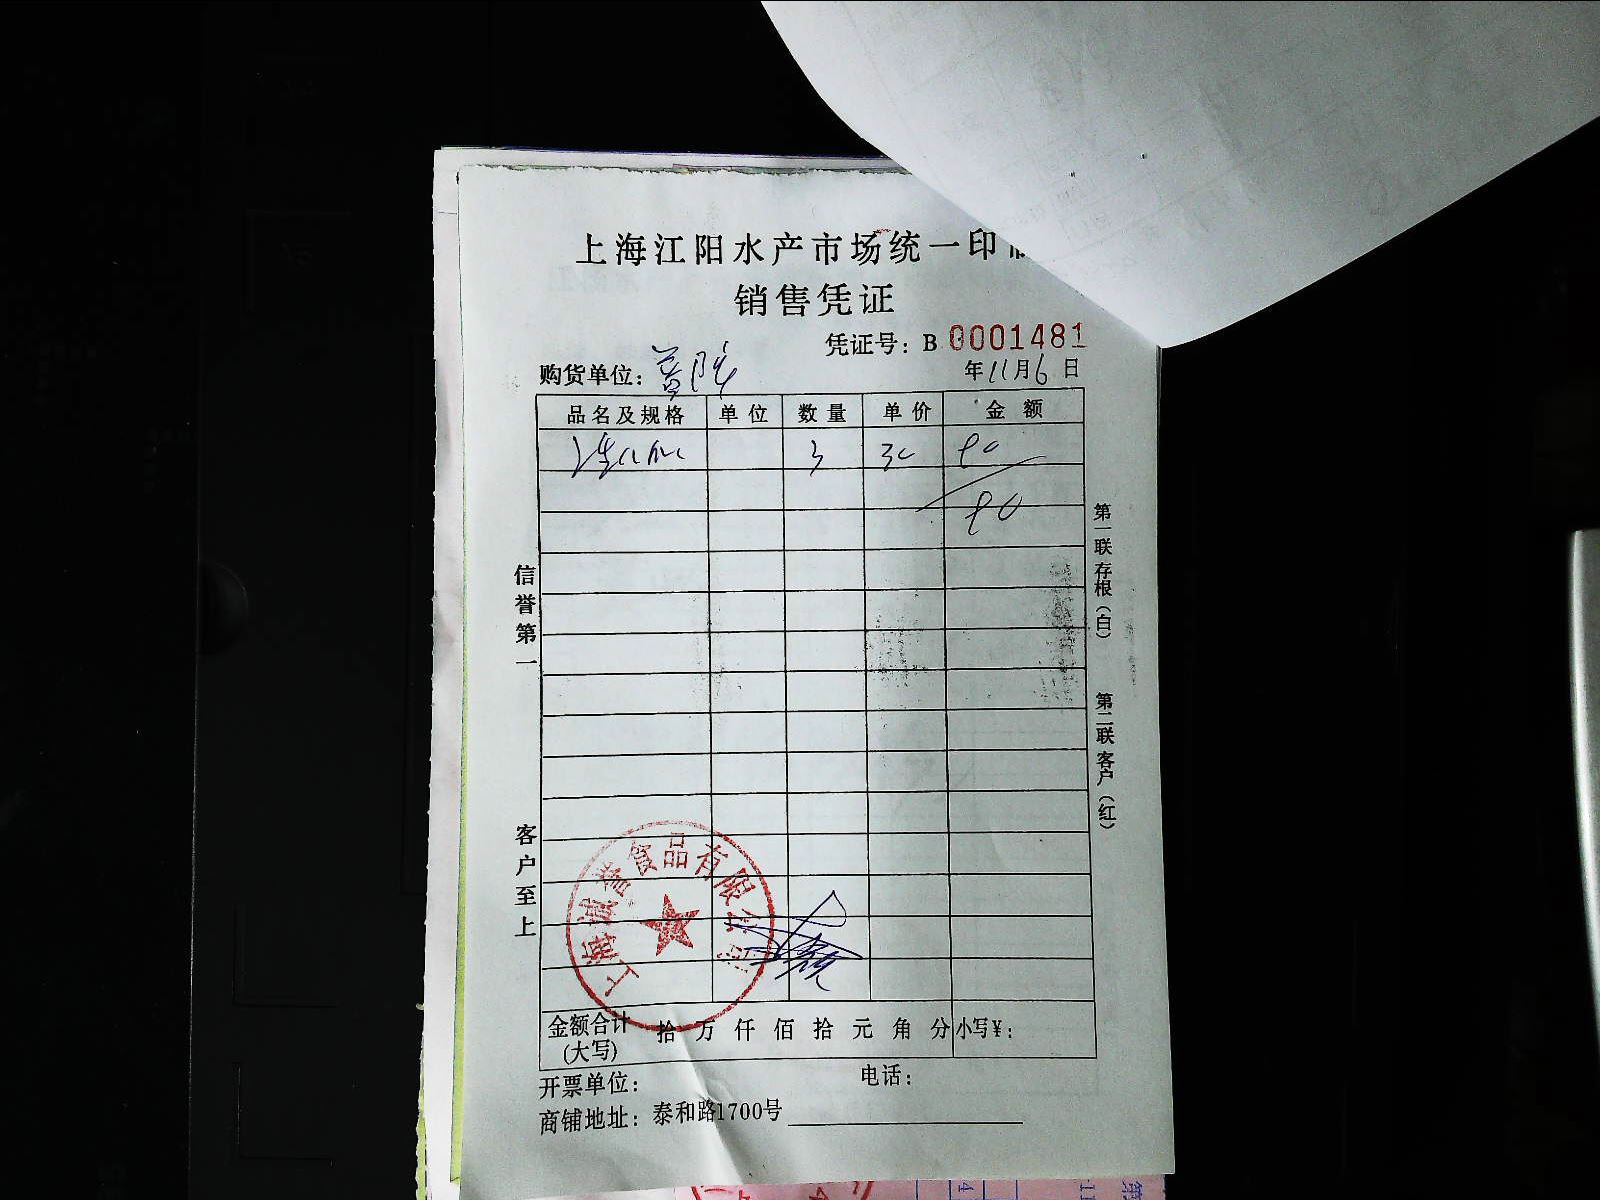 上海江阳水产市场统一印
销售凭证
凭证号：B 0001481
购货单位：
年11月6日
品名及规格 单位 数量 单价 金额
3 30 90
90
信誉第一
客户至上
第一联存根（白）
第二联客户（红）
上海诚誉食品有限公司
金额合计(大写) 拾万仟佰拾元角分 小写¥：
开票单位： 电话：
商铺地址：泰和路1700号